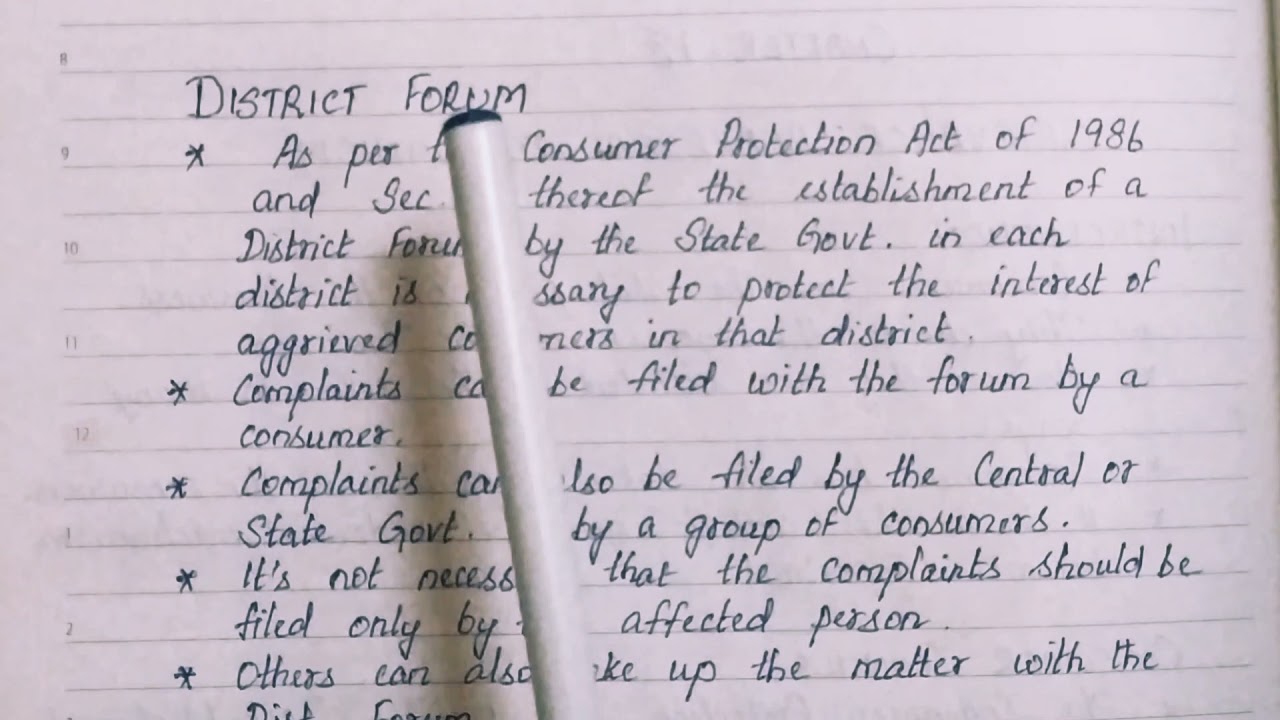 8
DISTRICT FORUM
9
* As per Consumer Protection Act of 1986
and Sec. thereof the establishment of a
10
District Forum by the State Govt. in each
district is to protect the interest of
11
aggrieved in that district.
* Complaints be filed with the forum by a
12
consumer.
* Complaints be filed by the Central or
1
State Govt. by a group of consumers.
* It's not that the complaints should be
2
filed only by affected person.
* Others can also up the matter with the
Dist Forum